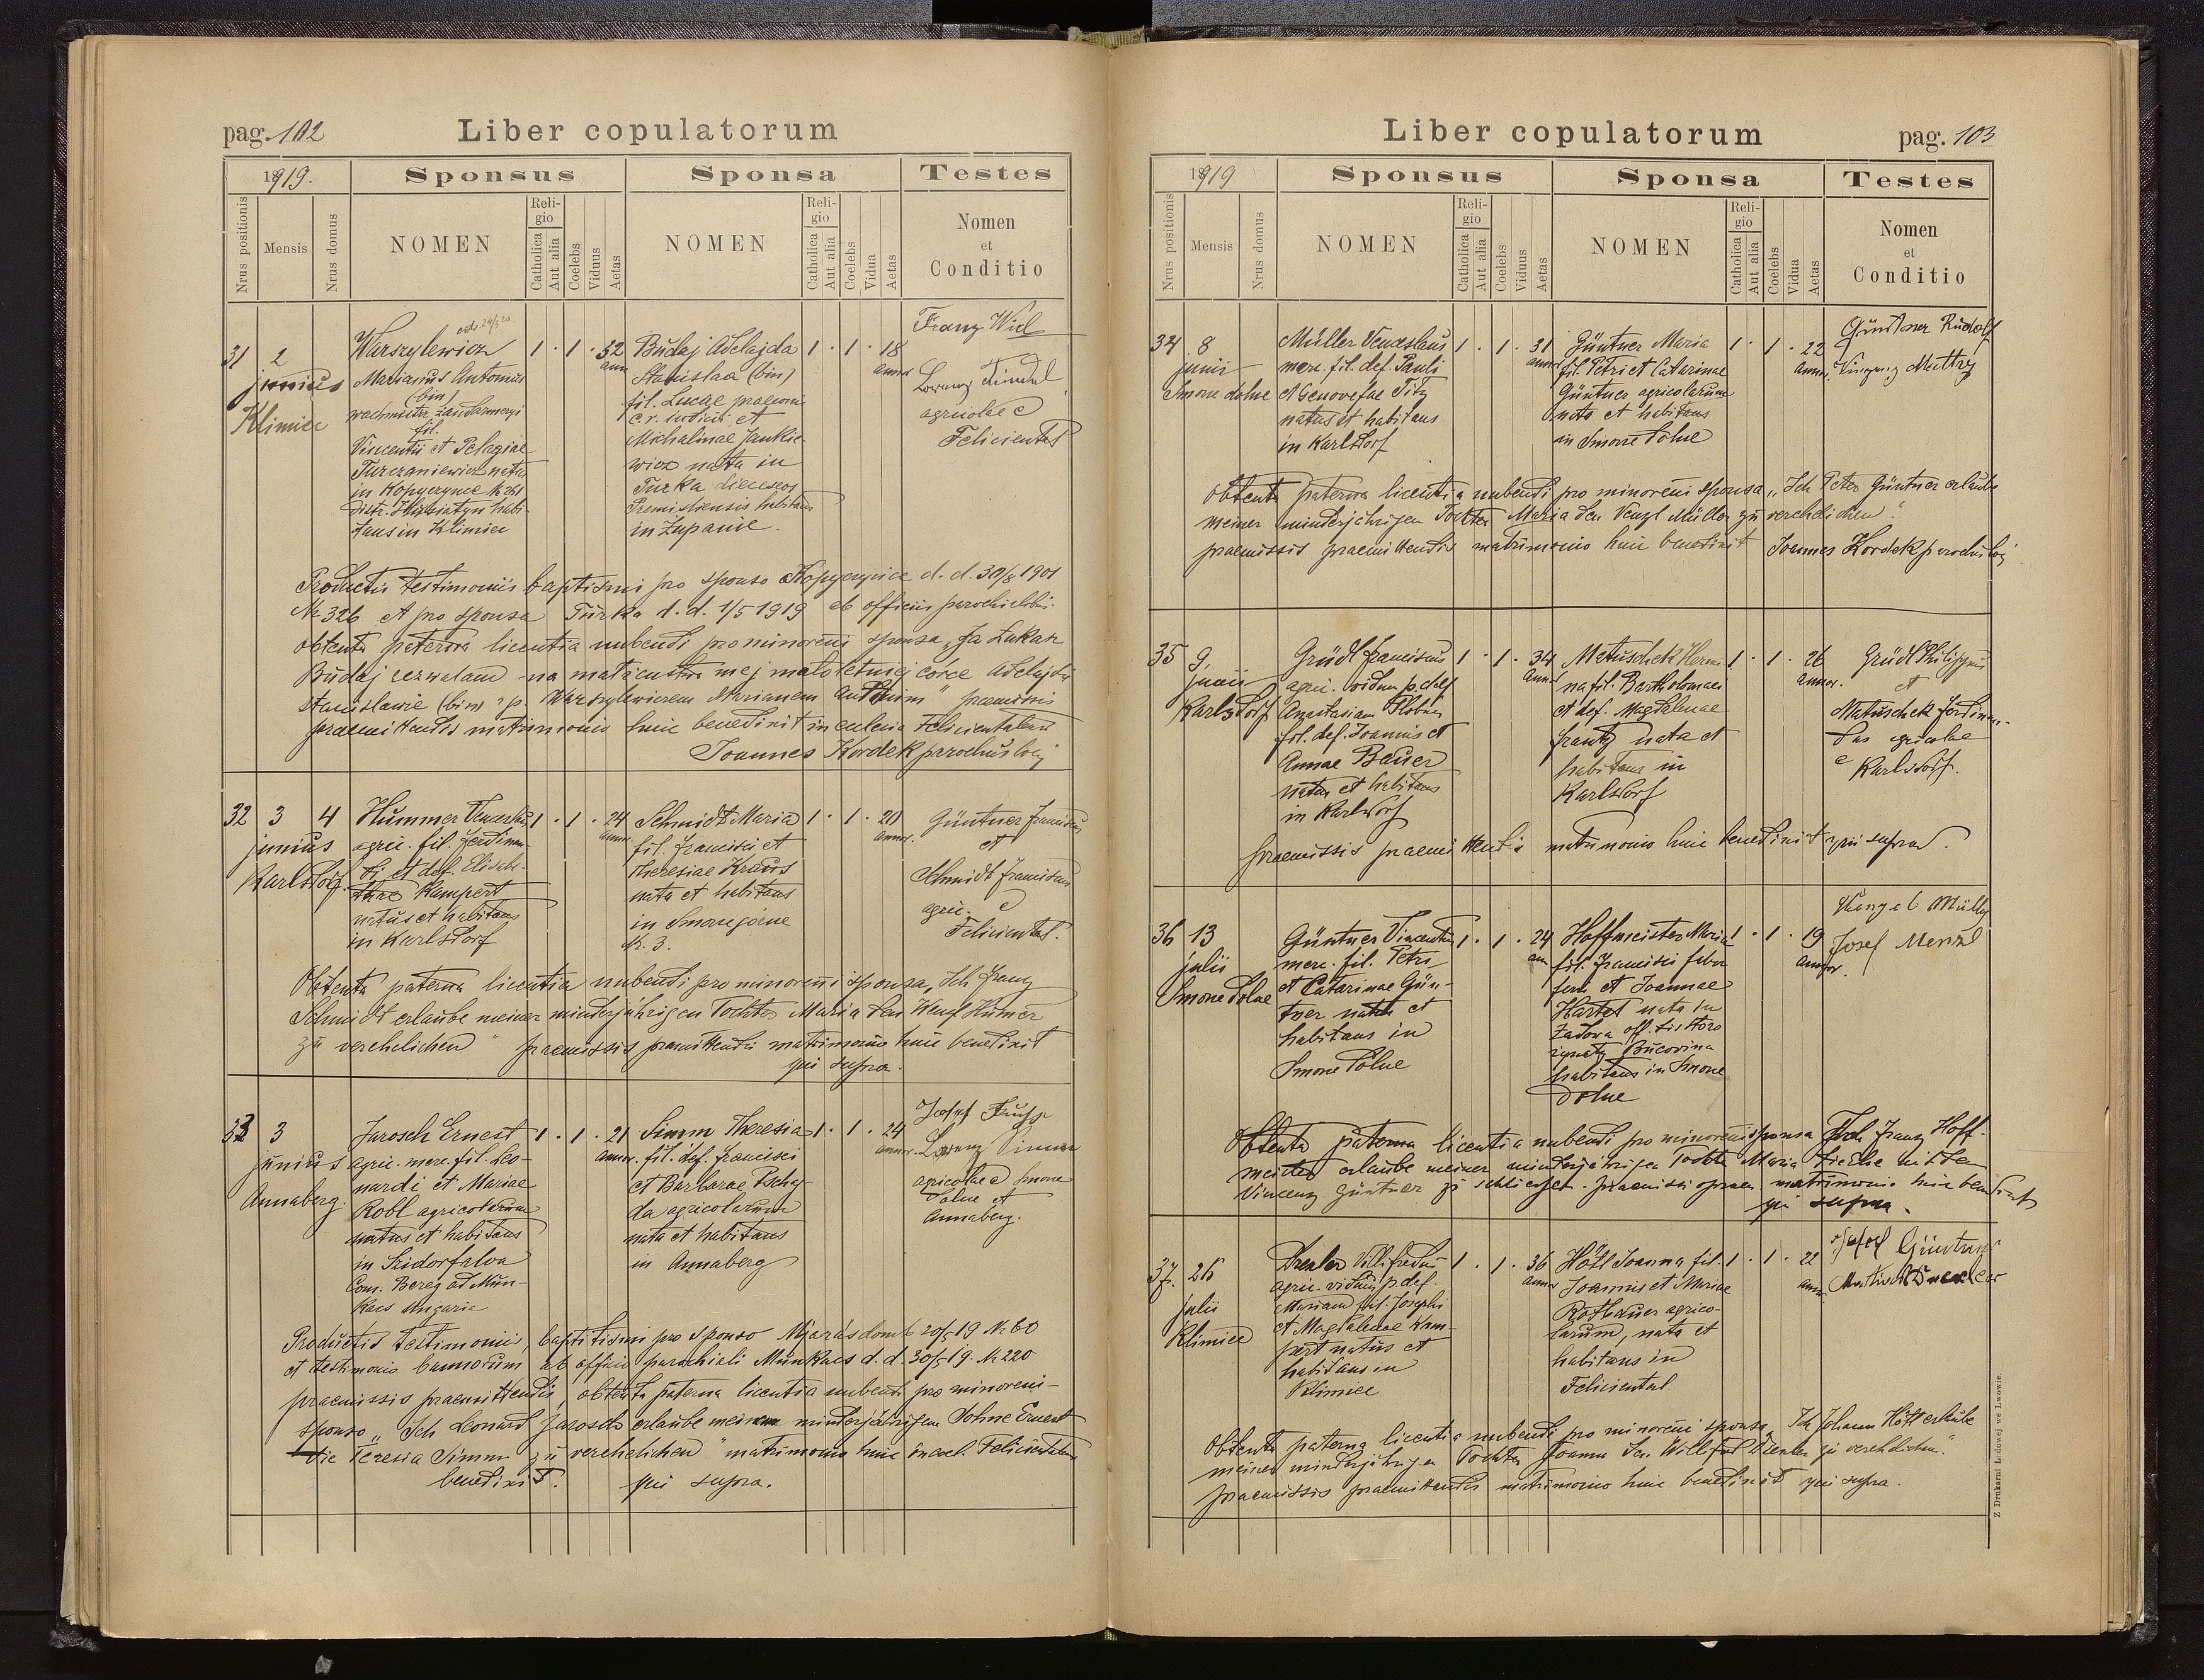 pag. 102
Liber copulatorum
1919.
Sponsus
Sponsa
Testes
Nrus positionis
Mensis
Nrus domus
NOMEN
Religio
Catholica
Aut alia
Coelebs
Viduus
Aetas
NOMEN
Religio
Catholica
Aut alia
Coelebs
Vidua
Aetas
Nomen
et
Conditio
31 2
junius
Klimiec
Warszylewicz
Marianus Antonius
(bin)
wachmistrz żandarmeryi
fil.
Vincentii et Pelagiae
Turczaniewicz natus
in Kopyczynce № 261
distr. Husiatyn habi-
tans in Klimiec
1 . 1 . 32
ann
Budaj Adelajda
Stanislaa (bin)
fil. Lucae
c.r. iudicii et
Michalinae Jankie-
wicz nata in
Turka dieceseos
Premisliensis habitans
in Żupanie.
1 . 1 . 18
annor
Franz Wiel
Lorenz
agricolae e
Felicienthal
Productis testimoniis baptismi pro sponso Kopyczynce d. d. 30/8 1901
№ 326 et pro sponsa Turka d. d. 1/5 1919 ab officiis parochialibus.
obtenta paterna licentia nubendi pro minoreni sponsa „Ja Lukasz
Budaj zezwalam na małżeństwo mej małoletniej córce Adelajdzie
Stanisławie (bin) z p. Warszylewiczem Marianem Antonim" praemissis
praemittendis matrimonio huic benedixit in ecclesia Felicienthalensi
Joannes Kordek parochus loci
32 3 4
junius
Karlsdorf.
Hummer Venceslaus
agric. fil. Ferdinan-
di et def. Elisabe-
thae Kampert
natus et habitans
in Karlsdorf
1 . 1 . 24
annor
Schmidt Maria
fil. Francisci et
Theresiae Kraus
nata et habitans
in Smorze górne
№. 3.
1 . 1 . 20
annor.
Güntner Franciscus
et
Schmidt Franciscus
agric. e
Felicienthal.
Obtenta paterna licentia nubendi pro minoreni sponsa, „Ich Franz
Schmidt erlaube meiner minderjährigen Tochter Maria den Wenzl Humer
zu verehelichen" praemissis praemittendis matrimonio huic benedixit
qui supra.
33 3
junius
Annaberg.
Jarosch Ernest
agric. merc. fil. Leo-
nardi et Mariae
Robl agricolarum
natus et habitans
in Szidorfalva
Com. Bereg ad Mun-
kacs Ungaria
1 . 1 . 21
annor.
Simm Theresia
fil. def. Francisci
et Barbarae Pschej-
da agricolarum
nata et habitans
in Annaberg
1 . 1 . 24
annor.
Josef
Lorenz Simm
agricolae e Smorze
dolne et
Annaberg.
Productis testimoniis, baptismi pro sponso 20/5 19 № 60
et testimonio bannorum ab officio parochiali Munkacs d. d. 30/5 19. № 220
praemissis praemittendis, obtenta paterna licentia nubendi pro minoreni-
sponso „Ich Leonard Jarosch erlaube meinem minderjährigen Sohne Ernest
die Teresia Simm zu verehelichen" matrimonio huic in eccl. Felicienthalensi
benedixit. qui supra.
Liber copulatorum
pag. 103
1919
Sponsus
Sponsa
Testes
Nrus positionis
Mensis
Nrus domus
NOMEN
Religio
Catholica
Aut alia
Coelebs
Viduus
Aetas
NOMEN
Religio
Catholica
Aut alia
Coelebs
Vidua
Aetas
Nomen
et
Conditio
34 8
junii
Smorze dolne
Müller Venceslaus
merc. fil. def. Pauli
et Genovefae Titz
natus et habitans
in Karlsdorf
1 . 1 . 31
annor
Güntner Maria
fil. Petri et Catarinae
Güntner agricolarum
nata et habitans
in Smorze dolne
1 . 1 . 22
annor.
Güntner Rudolf
Vinzenz
Obtenta paterna licentia nubendi pro minoreni sponsa „Ich Peter Güntner erlaube
meiner minderjährigen Tochter Maria den Venzl Müller zu verehelichen".
praemissis praemittendis matrimonio huic benedixit Joannes Kordek parochus loci
35 9.
junii
Karlsdorf
Grüdl Franciscus
agric. viduus p. def.
Anastasiam
fil. def. Joannis et
Annae Bauer
natus et habitans
in Karlsdorf
1 . 1 . 34
annor
Matuschek Hermi-
na fil. Bartholomaei
et def. Magdalenae
Frantz nata et
habitans in
Karlsdorf
1 . 1 . 26
annor.
Grüdl Philippus
et
Matuschek Ferdinan-
dus agricolae
e Karlsdorf.
praemissis praemittendis matrimonio huic benedixit qui supra.
36 13
julii
Smorze dolne
Güntner Vincentius
merc. fil. Petri
et Catarinae Günt-
ner natus et
habitans in
Smorze dolne
1 . 1 . 24
ann
Hoffmeister Maria
fil. Francisci
et Joannae
Hartel nata in
Zadowa
Bucovina
habitans in Smorze
dolne
1 . 1 . 19
annor.
Müller
Josef Menzl
Obtenta paterna licentia nubendi pro minoreni sponsa Ich Franz Hoff-
meister erlaube meiner minderjährigen Tochter Maria die Ehe mit dem
Vincenz Güntner zu schliessen. praemissis praem. matrimonio huic benedixit
qui supra.
37. 26
julii
Klimiec
Drexler Villifredus
agric. viduus p. def.
Mariam fil. Josephi
et Magdalenae Kam-
pert natus et
habitans in
Klimiec
1 . 1 . 36
annor
Hötl Joanna fil.
Joannis et Mariae
Rothbauer agrico-
larum, nata et
habitans in
Felicienthal
1 . 1 . 22
annor.
Josef Güntner
Drexler
Obtenta paterna licentia nubendi pro minoreni sponsa, „Ich Johann Hötl erlaube
meiner minderjährigen Tochter Joanna den Willifred Drexler zu verehelichen".
praemissis praemittendis matrimonio huic benedixit qui supra.
Z Drukarni Ludowej we Lwowie.